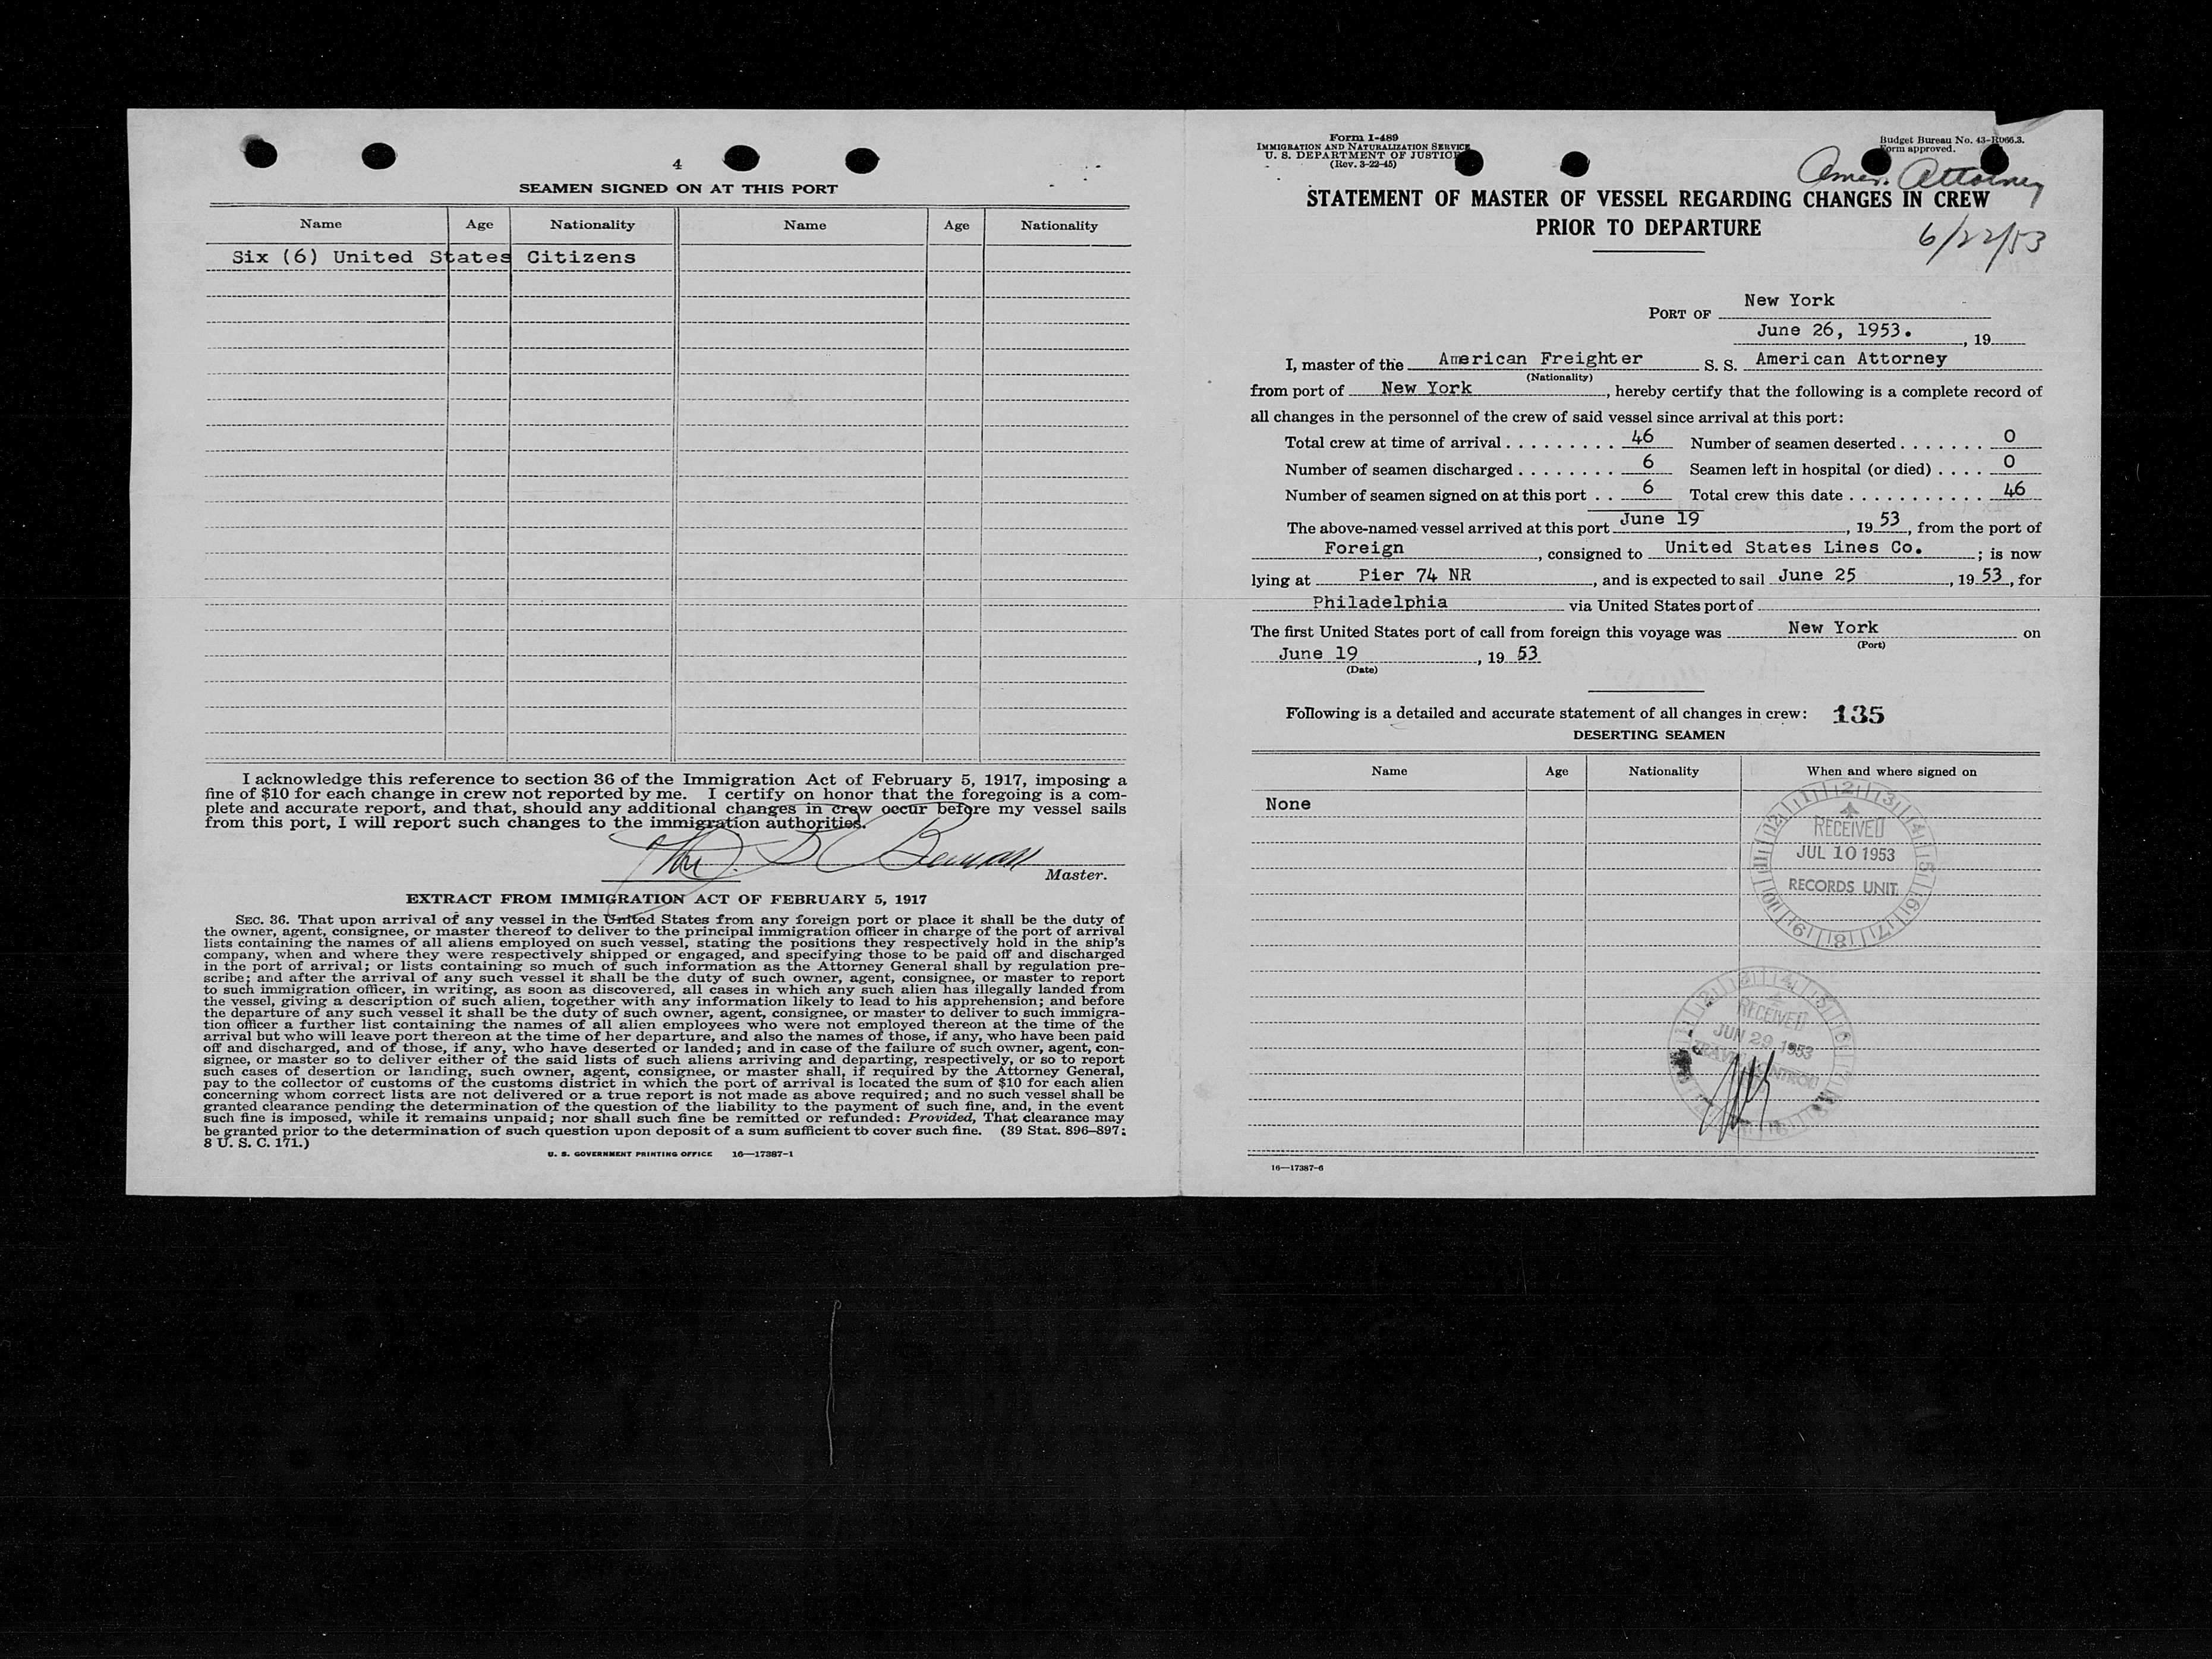 4
SEAMEN SIGNED ON AT THIS PORT
Name Age Nationality Name Age Nationality
Six (6) United States Citizens
I acknowledge this reference to section 36 of the Immigration Act of February 5, 1917, imposing a
fine of $10 for each change in crew not reported by me. I certify on honor that the foregoing is a com-
plete and accurate report, and that, should any additional changes in crew occur before my vessel sails
from this port, I will report such changes to the immigration authorities.
Master.
EXTRACT FROM IMMIGRATION ACT OF FEBRUARY 5, 1917
SEC. 36. That upon arrival of any vessel in the United States from any foreign port or place it shall be the duty of
the owner, agent, consignee, or master thereof to deliver to the principal immigration officer in charge of the port of arrival
lists containing the names of all aliens employed on such vessel, stating the positions they respectively hold in the ship's
company, when and where they were respectively shipped or engaged, and specifying those to be paid off and discharged
in the port of arrival; or lists containing so much of such information as the Attorney General shall by regulation pre-
scribe; and after the arrival of any such vessel it shall be the duty of such owner, agent, consignee, or master to report
to such immigration officer, in writing, as soon as discovered, all cases in which any such alien has illegally landed from
the vessel, giving a description of such alien, together with any information likely to lead to his apprehension; and before
the departure of any such vessel it shall be the duty of such owner, agent, consignee, or master to deliver to such immigra-
tion officer a further list containing the names of all alien employees who were not employed thereon at the time of the
arrival but who will leave port thereon at the time of her departure, and also the names of those, if any, who have been paid
off and discharged, and of those, if any, who have deserted or landed; and in case of the failure of such owner, agent, con-
signee, or master so to deliver either of the said lists of such aliens arriving and departing, respectively, or so to report
such cases of desertion or landing, such owner, agent, consignee, or master shall, if required by the Attorney General,
pay to the collector of customs of the customs district in which the port of arrival is located the sum of $10 for each alien
concerning whom correct lists are not delivered or a true report is not made as above required; and no such vessel shall be
granted clearance pending the determination of the question of the liability to the payment of such fine, and, in the event
such fine is imposed, while it remains unpaid; nor shall such fine be remitted or refunded: Provided, That clearance may
be granted prior to the determination of such question upon deposit of a sum sufficient to cover such fine. (39 Stat. 896–897;
8 U. S. C. 171.)
U. S. GOVERNMENT PRINTING OFFICE 16—17387-1
Form I-489
IMMIGRATION AND NATURALIZATION SERVICE
U. S. DEPARTMENT OF JUSTICE
(Rev. 3-22-45)
Budget Bureau No. 43-R066.3.
Form approved.
Amer. Attorney
STATEMENT OF MASTER OF VESSEL REGARDING CHANGES IN CREW
PRIOR TO DEPARTURE
6/22/53
PORT OF New York
June 26, 1953. , 19
I, master of the American Freighter S. S. American Attorney
(Nationality)
from port of New York , hereby certify that the following is a complete record of
all changes in the personnel of the crew of said vessel since arrival at this port:
Total crew at time of arrival . . . . . . . . . 46 Number of seamen deserted . . . . . . . 0
Number of seamen discharged . . . . . . . . 6 Seamen left in hospital (or died) . . . . 0
Number of seamen signed on at this port . . 6 Total crew this date . . . . . . . . . . . 46
The above-named vessel arrived at this port June 19 , 19 53 , from the port of
Foreign , consigned to United States Lines Co. ; is now
lying at Pier 74 NR , and is expected to sail June 25 , 19 53 , for
Philadelphia via United States port of
The first United States port of call from foreign this voyage was New York on
(Port)
June 19 , 19 53
(Date)
Following is a detailed and accurate statement of all changes in crew: 135
DESERTING SEAMEN
Name Age Nationality When and where signed on
None
RECEIVED
JUL 10 1953
RECORDS UNIT
RECEIVED
JUN 29 1953
16—17387-6